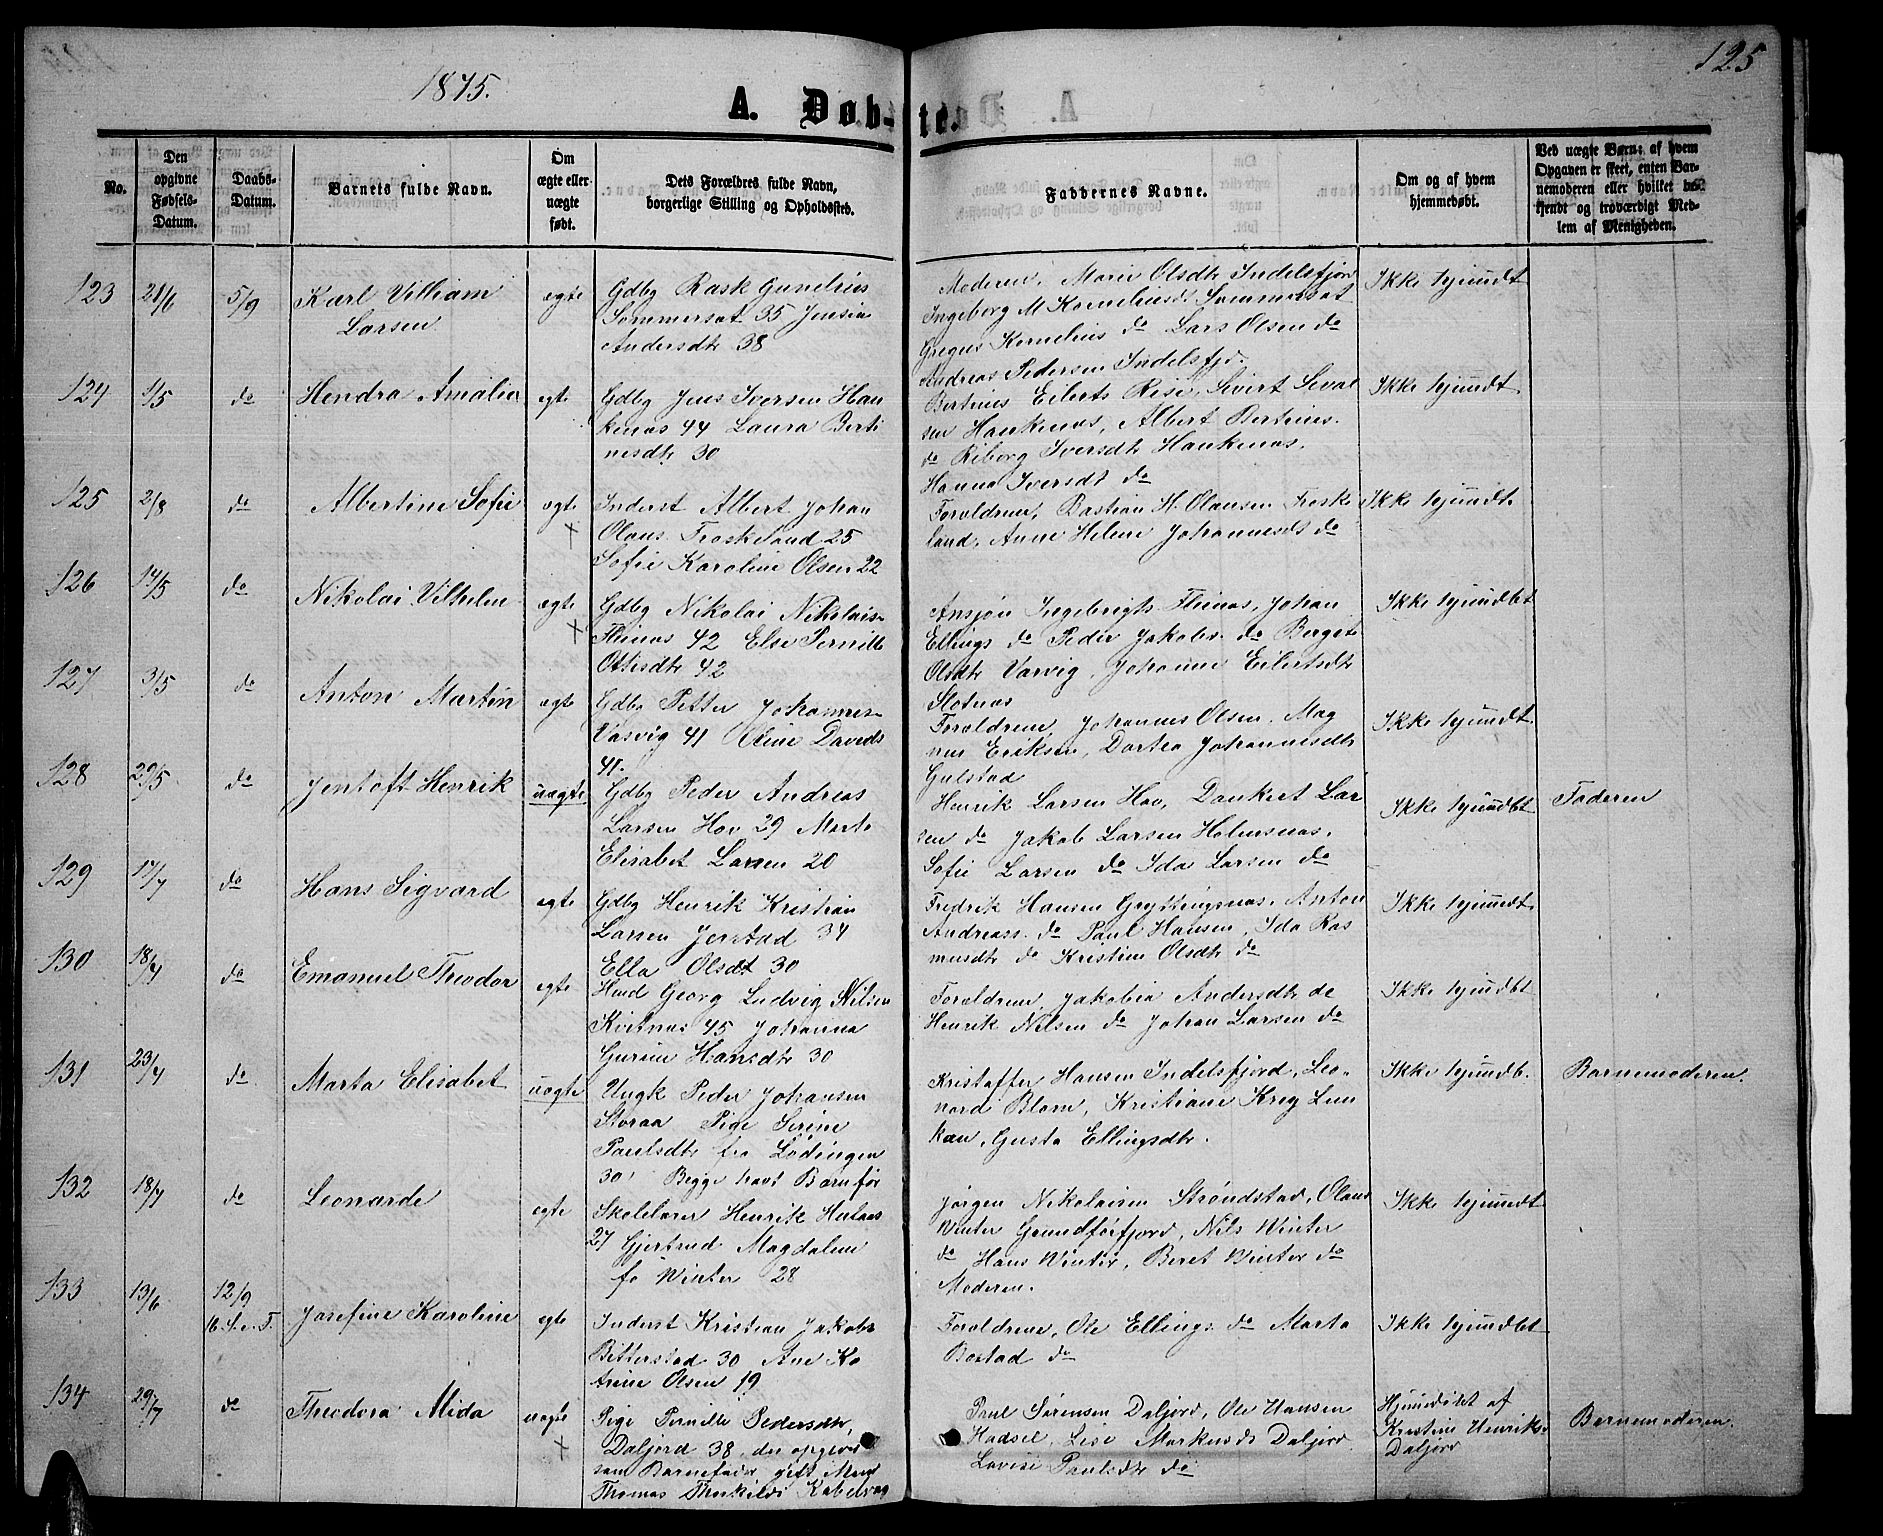 1875.
125
A. Døb-
te.
No.
Den opgivne Fødsels-Datum.
Daabs-Datum.
Barnets fulde Navn.
Om ægte eller uægte født.
Dets Forældres fulde Navn, borgerlige Stilling og Opholdssted.
Faddernes Navne.
Om og af hvem hjemmedøbt.
Ved uægte Børn: af hvem Opgaven er skeet, enten Barnemoderen eller hvilket bekjendt og troværdigt Medlem af Menigheden.
123 21/6 5/9 Karl Villiam
Larsen
ægte
Gdbg Rask Gunelius
Sommersæt 35 Jensine
Andersdtr 38
Moderen, Marie Olsdtr Indelsfjord
Ingeborg M Kornelius Sommersæt
Gregus Kornelius do Lars Olsen do
Andreas Pedersen Indelsfjd.
Ikke hjemmdt
124 1/5 do Hendra Amalia ægte
Gdbg Jens Iversen Han
kenæs 44 Laura Berti
nesdtr 30
Bertines Eilerts Risö, Sivert Sival
sen Hankenæs, Albert Bertines.
do Riborg Iversdtr Hankenæs,
Hanna Iversdt do
Ikke hjemmdt
125 2/8 do Albertine Sofie ægte
Inderst Albert Johan
Olaus. Froskeland 25
Sofie Karoline Olsen 22
Forældrene, Bastian H. Olausen Froske
land, Anne Helene Johannesdt do
Ikke hjemmdt
126 14/5 do Nikolai Vilhelm ægte
Gdbg Nikolai Nikolais-
Flesnæs 42 Else Pernille
Ottisdtr 42
Ansjøn Ingebrigts Flesnæs, Johan
Ellings do Peder Jakobs do Berget
Olsdtr Vasvig, Johanne Eilertsdtr
Slotnæs
Ikke hjemmdbt
127 3/5 do Anton Martin ægte
Gdbg Petter Johannes-
Vasvig 41 Oline Davids
41.
Forældrene, Johannes Olsen, Mag
nus Eriksen, Dortea Johannesdtr
Gulstad
Ikke hjemmdt
128 29/5 do Jentoft Henrik uægte
Gdbg Peder Andreas
Larsen Hov 29 Marta
Elisabet Larsen 20
Henrik Larsen Hov, Dankert Lar
sen do Jakob Larsen Holmsnæs,
Sofie Larsen do Ida Larsen do
Ikke hjemmdbt
Faderen
129 17/7 do Hans Sigvard ægte
Gdbg Henrik Kristian
Larsen Jerstad 34
Ella Olsdt 30
Fredrik Hansen Gryttingsnæs, Anton
Andreass. do Paul Hansen, Ida Ras
musdtr do Kristine Olsdtr do
Ikke hjemmedt
130 18/7 do Emanuel Theodor ægte
Husd Georg Ludvig Nilsen
Kvitnæs 45 Johanna
Gurine Hansdtr 30
Forældrene, Jakobia Andersdtr do
Henrik Nilsen do Johan Larsen do
Ikke hjemmdbt
131 23/7 do Marta Elisabet uægte
Ungk Peder Johansen
Storaa Pige Serine
Paulsdtr fra Lødingen
30 Begge havt Barn før
Kristoffer Hansen Indelsfjord, Leo-
nord Blom, Kristiane Krey Lun
kan, Gusta Ellingsdtr.
Ikke hjemmdb.
Barnemoderen.
132 18/7 do Leonarde ægte
Skolelærer Henrik Hulaas
27 Gjertrud Magdalene
fø Winter 28
Jørgen Nikolaisen Strøndstad, Olaus
Winter Grundførfjord, Nils Winter
do Hans Winter, Beret Winter do
Moderen.
Ikke hjemmedt
133 13/6 12/9
16. S. e. T.
Josefine Karoline ægte
Inderst Kristian Jakobs
Bitterstad 30 Ane Ka
trine Olsen 19
Forældrene, Ole Ellings. do Marta
Bostad do
Ikke hjemmdbt
134 29/7 do Theodora Alida uægte
Pige Pernille Pedersdtr,
Daljord 38, der opgiver
som Barnefader, gift Mand
Thomas Thorkilds Kabelvog
Paul Sørensen Daljord, Ole Hansen
Hadsel, Lise Markusdt Daljord
Lovise Paulsdtr do
Hjemmdøbt af
Kristine Henriks.
Daljord
Barnemoderen.